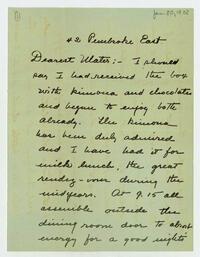 Jan 30, 1908
42 Pembroke East
Dearest Mater:- I should
say I had received the box
with kimona and chocolates
and begun to enjoy both
already. The kimona
has been duly admired
and I have had it for
milk lunch, the great
rendez-vous during the
midyears. At 9.15 all
assemble outside the
dining room door to absorb
energy for a good night's